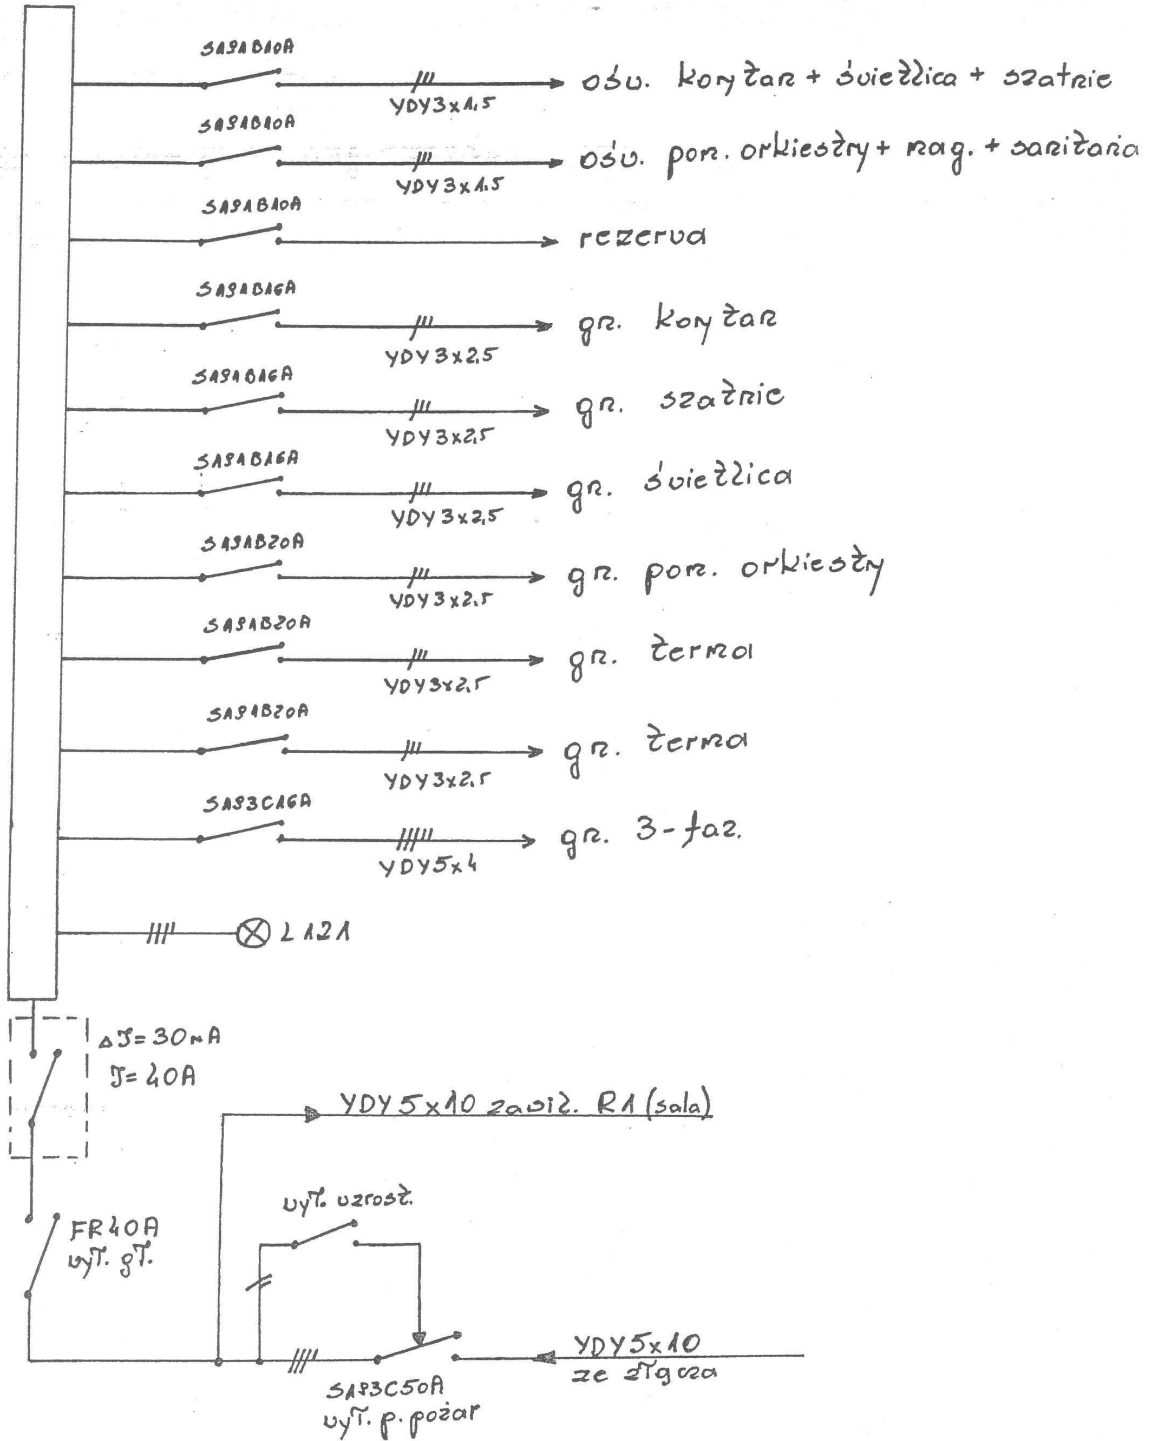 SAS1B10A
YDY3x1.5
ośw. korytarz + świetlica + szatnie
SAS1B10A
YDY3x1.5
ośw. pom. orkiestry + mag. + sanitaria
SAS1B10A
rezerwa
SAS1B16A
YDY3x2.5
gn. korytarz
SAS1B16A
YDY3x2.5
gn. szatnie
SAS1B16A
YDY3x2.5
gn. świetlica
SAS1B20A
YDY3x2.5
gn. pom. orkiestry
SAS1B20A
YDY3x2.5
gn. terma
SAS1B20A
YDY3x2.5
gn. terma
SAS3C16A
YDY5x4
gn. 3-faz.
L121
ΔJ=30mA
J=40A
YDY5x10 zasil. R1 (sala)
wył. wzrost.
FR40A
wył. gł.
YDY5x10
ze złącza
SAS3C50A
wył. p. pożar